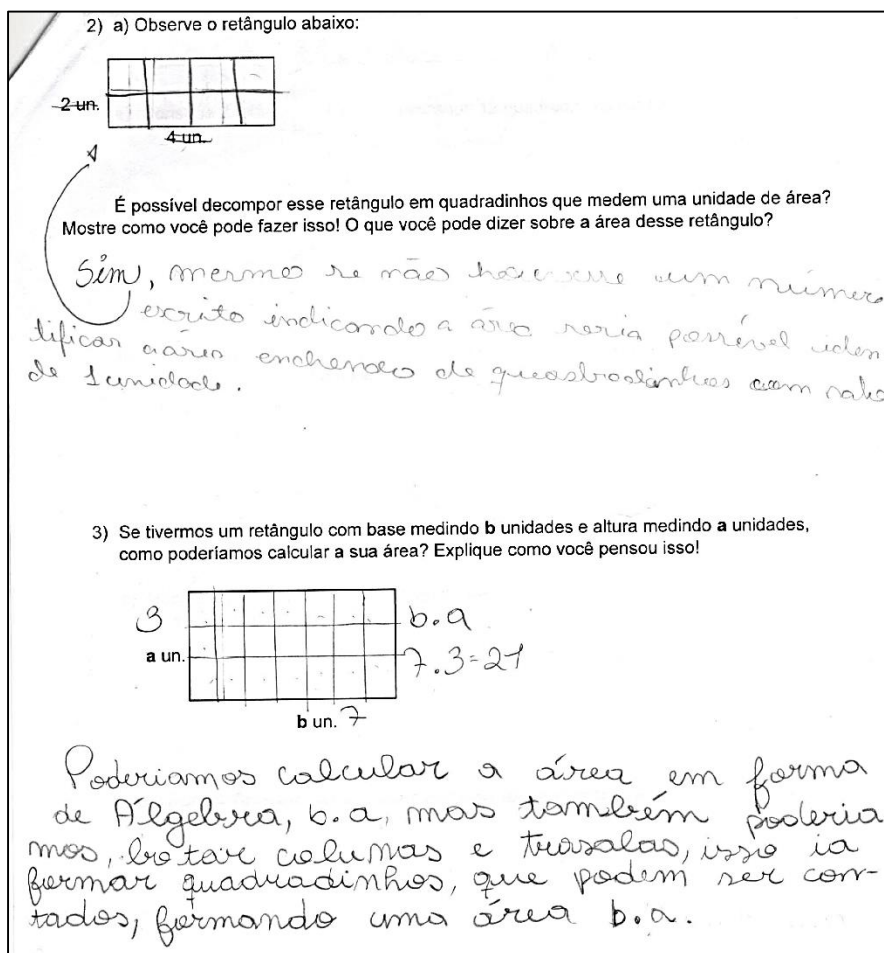 2) a) Observe o retângulo abaixo:
2 un.
4 un.
É possível decompor esse retângulo em quadradinhos que medem uma unidade de área?
Mostre como você pode fazer isso! O que você pode dizer sobre a área desse retângulo?
Sim, mermo se não houvesse um número
escrito indicando a área seria possível iden
tificar a área enchendo de quadradinhos com
de 1 unidade.
3) Se tivermos um retângulo com base medindo b unidades e altura medindo a unidades,
como poderíamos calcular a sua área? Explique como você pensou isso!
3
b.a
a un.
7.3=21
b un. 7
Poderiamos calcular a área em forma
de Álgebra, b.a, mas também poderia
mos, botar colunas e trasalas, isso ia
formar quadradinhos, que podem ser con-
tados, formando uma área b.a.